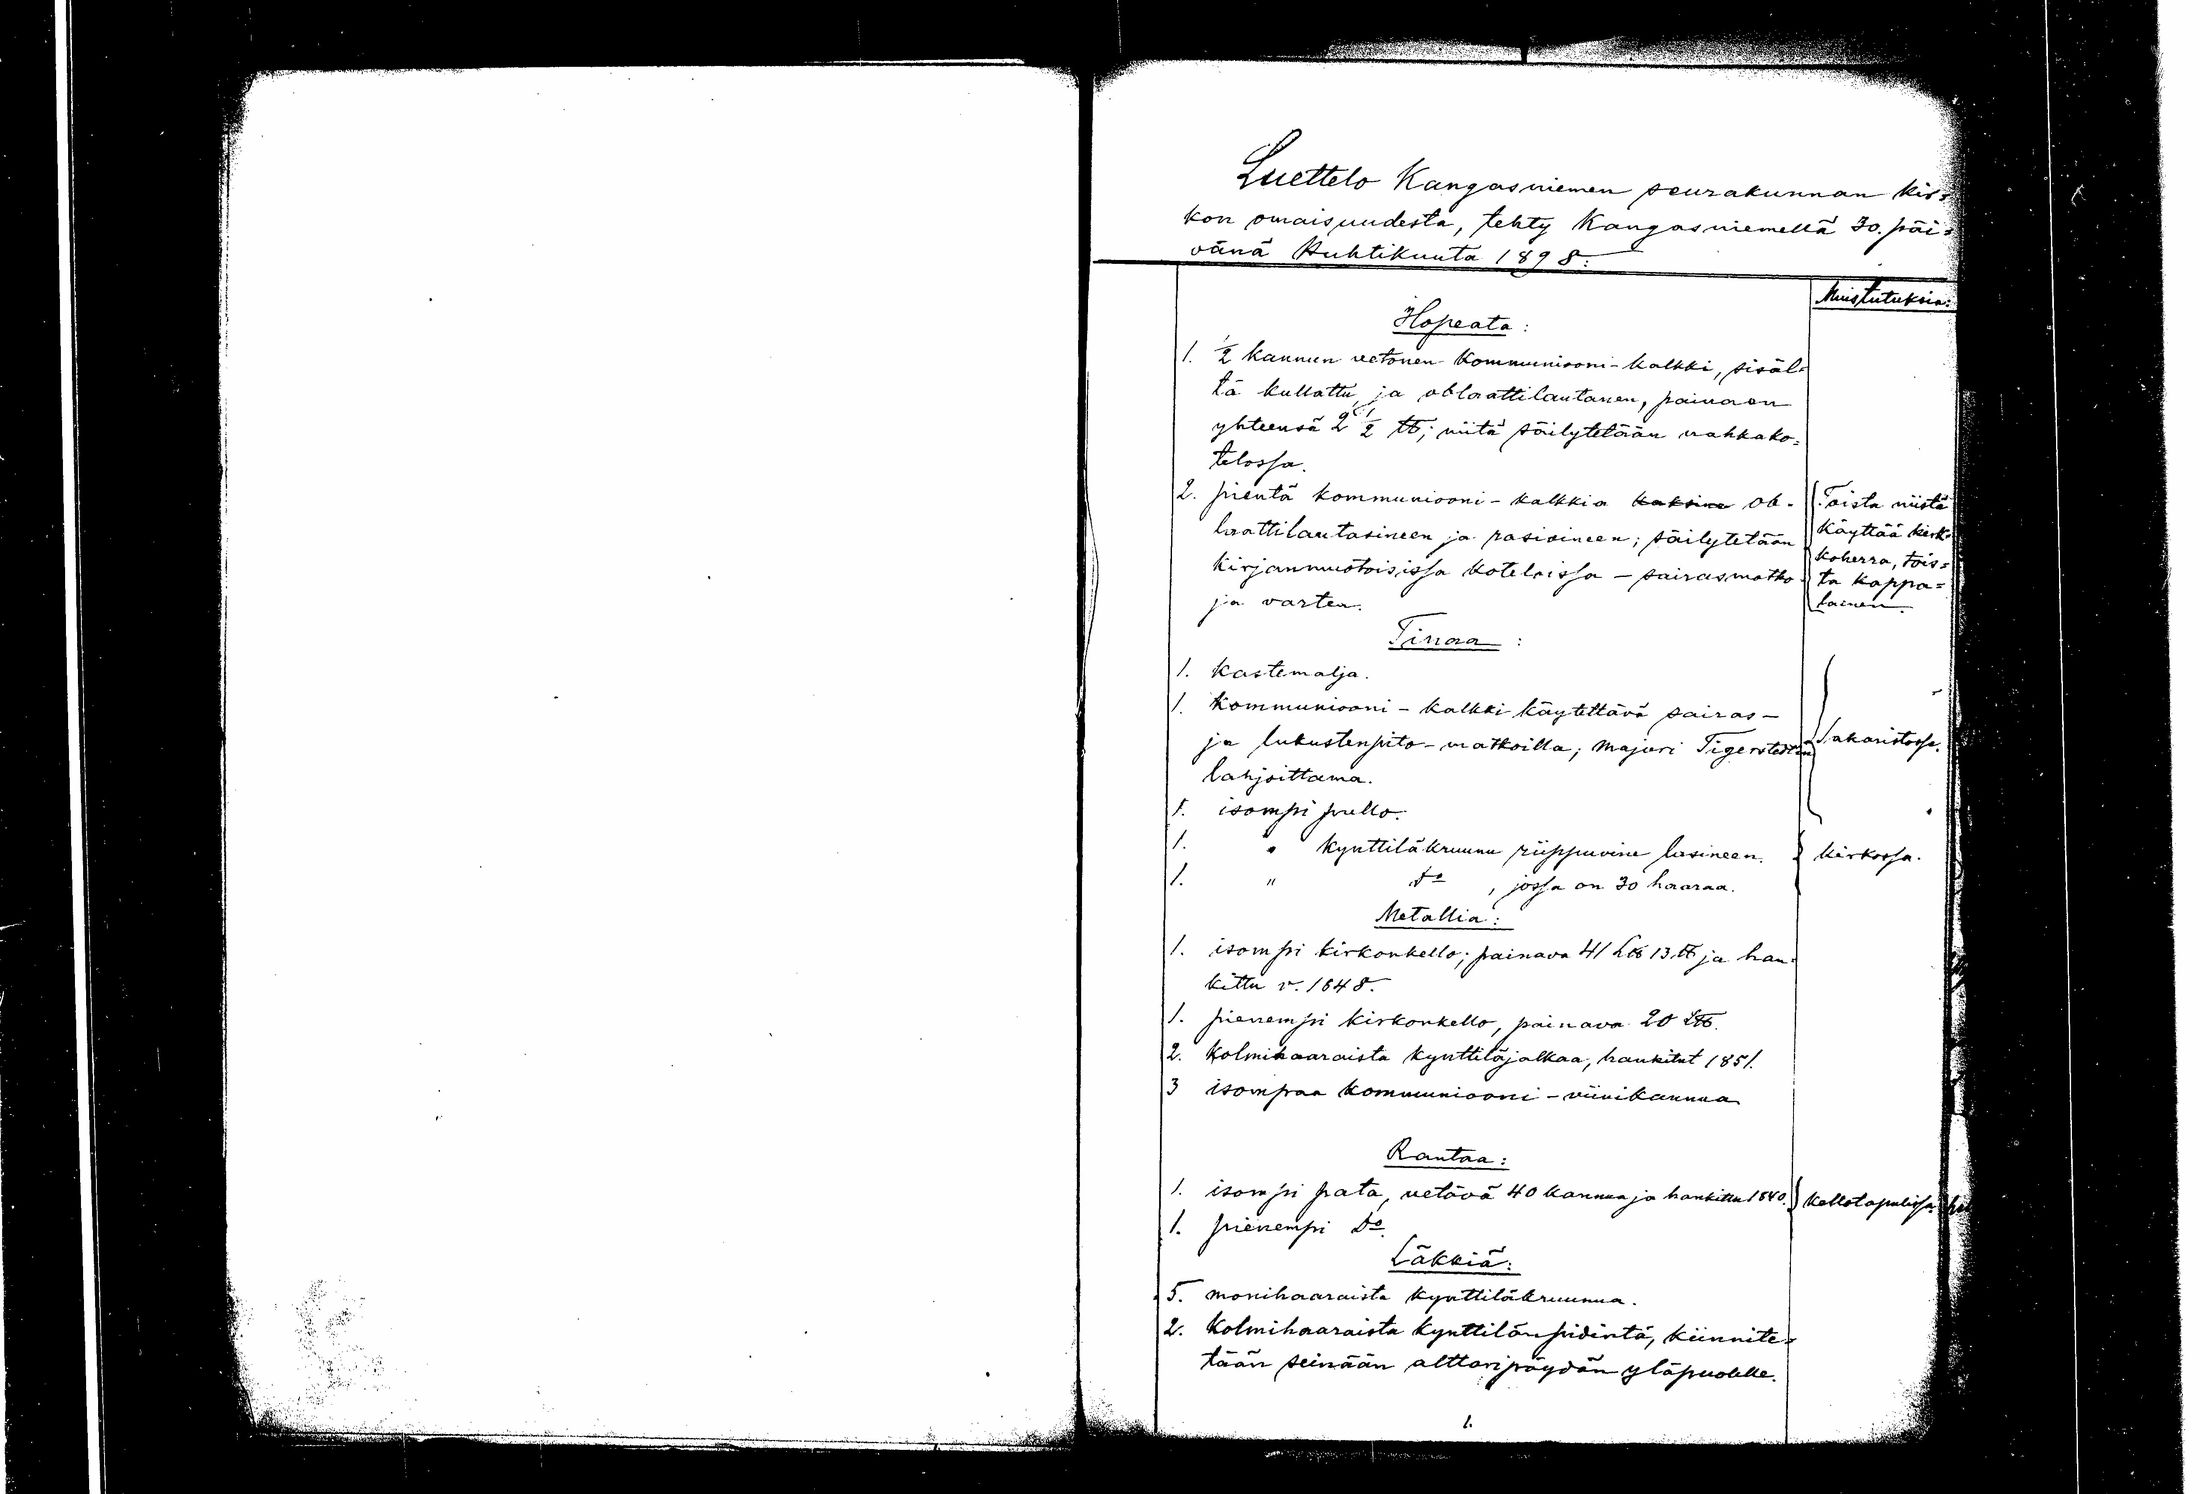 Luettelo Kangasniemen seurakunnan kir=
kon omaisuudesta, tehty Kangasniemellä 30. päi=
vänä Huhtikuuta 1898.
Muistutuksia:
Hopeata:
1. 1/2 kannun vetonen kommuniooni-kalkki, sisäl=
tä kullattu, ja oblaattilautanen, painaen
yhteensä 2 1/2 ℔; niitä säilytetään nahkako=
telossa.
2. pientä kommuniooni-kalkkia kaksine ob-
laattilautasineen ja rasioineen; säilytetään
kirjanmuotoisissa koteloissa - sairasmatko
ja varten.
Toista niistä
käyttää kirk=
koherra, tois=
ta kappa=
lainen.
Tinaa:
1. kastemalja.
1. kommuniooni-kalkki käytettävä sairas-
ja lukustenpito-matkoilla; majuri Tigerstedtin
lahjoittama.
Sakaristossa.
1. isompi pullo.
1. " kynttiläkruunu riippuvine lasineen.
1. " do, jossa on 30 haaraa.
kirkossa.
Metallia:
1. isompi kirkonkello; painava 41 L℔ 13 ℔ ja han=
kittu v. 1848.
1. pienempi kirkonkello, painava 20 L℔.
2. kolmihaaraista kynttiläjalkaa, hankitut 1851.
3 isompaa kommuniooni-viinikannua
Rautaa:
1. isompi pata, vetävä 40 kannua ja hankittu 1840.
kellotapulissa
1. pienempi do.
Läkkiä:
5. monihaaraista kynttiläkruunua.
2. kolmihaaraista kynttilänpidintä, kiinnite=
tään seinään alttaripöydän yläpuolelle.
1.